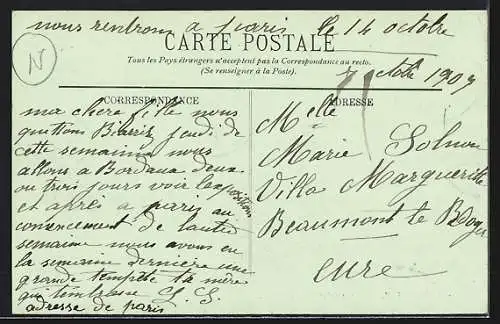 nous rentrom a paris le 14 octobre
CARTE POSTALE
Tous les Pays étrangers n'acceptent pas la Correspondance au recto.
(Se renseigner à la Poste).
octobre 1907
N
CORRESPONDANCE
ma chere fille nous
quittons Biarris jeudi de
cette semainne nous
allons a Bordaux deux
ou trois jours voir lexposition
et après a paris au
comencement de lautre
semainne nous avons eu
la semainne dernière une
grande tempête ta mère
qui tembrasse S. S.
adresse de paris
ADRESSE
Melle
Marie Solnon
Villa Marguerithe
Beaumont le Roger
eure